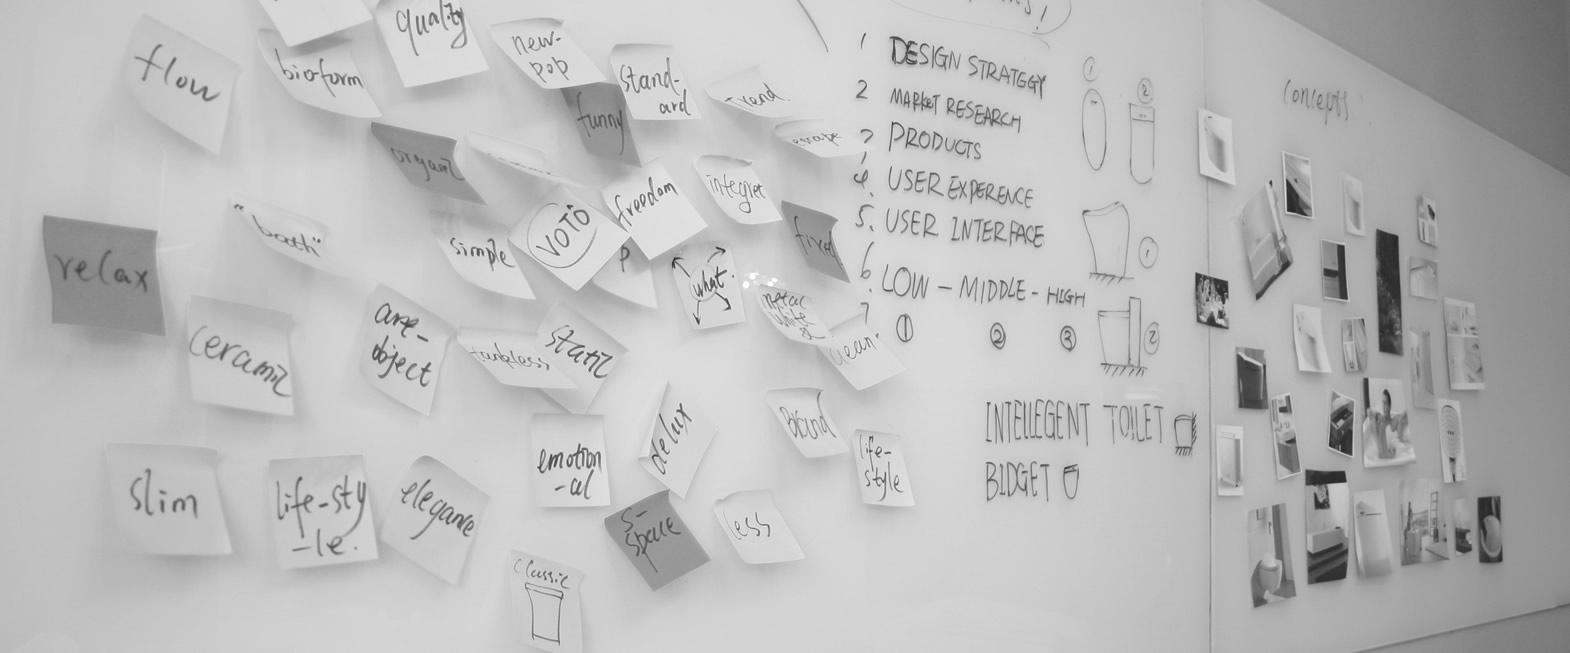 flow
bio-form
quality
new-
pop
stand-
ard
trend.
funny
escape
organic
freedom
integret
VOTO
simple
"bath"
relax
fixed
P
what.
metal
white
clean.
ceramic
are-
object
tankless
static
slim
life-sty
-le.
elegance
emotion
-al
delux
Bland
life-
style
s-
space
less
classic
1 DESIGN STRATGGY
2 MARKET RESEARCH
3 PRODUCTS
4. USER EXPERENCE
5. USER INTERFACE
6. LOW - MIDDLE - HIGH
7
1 2 3
INTELLEGENT TOILET
BIDGET
1
2
1
2
concepts